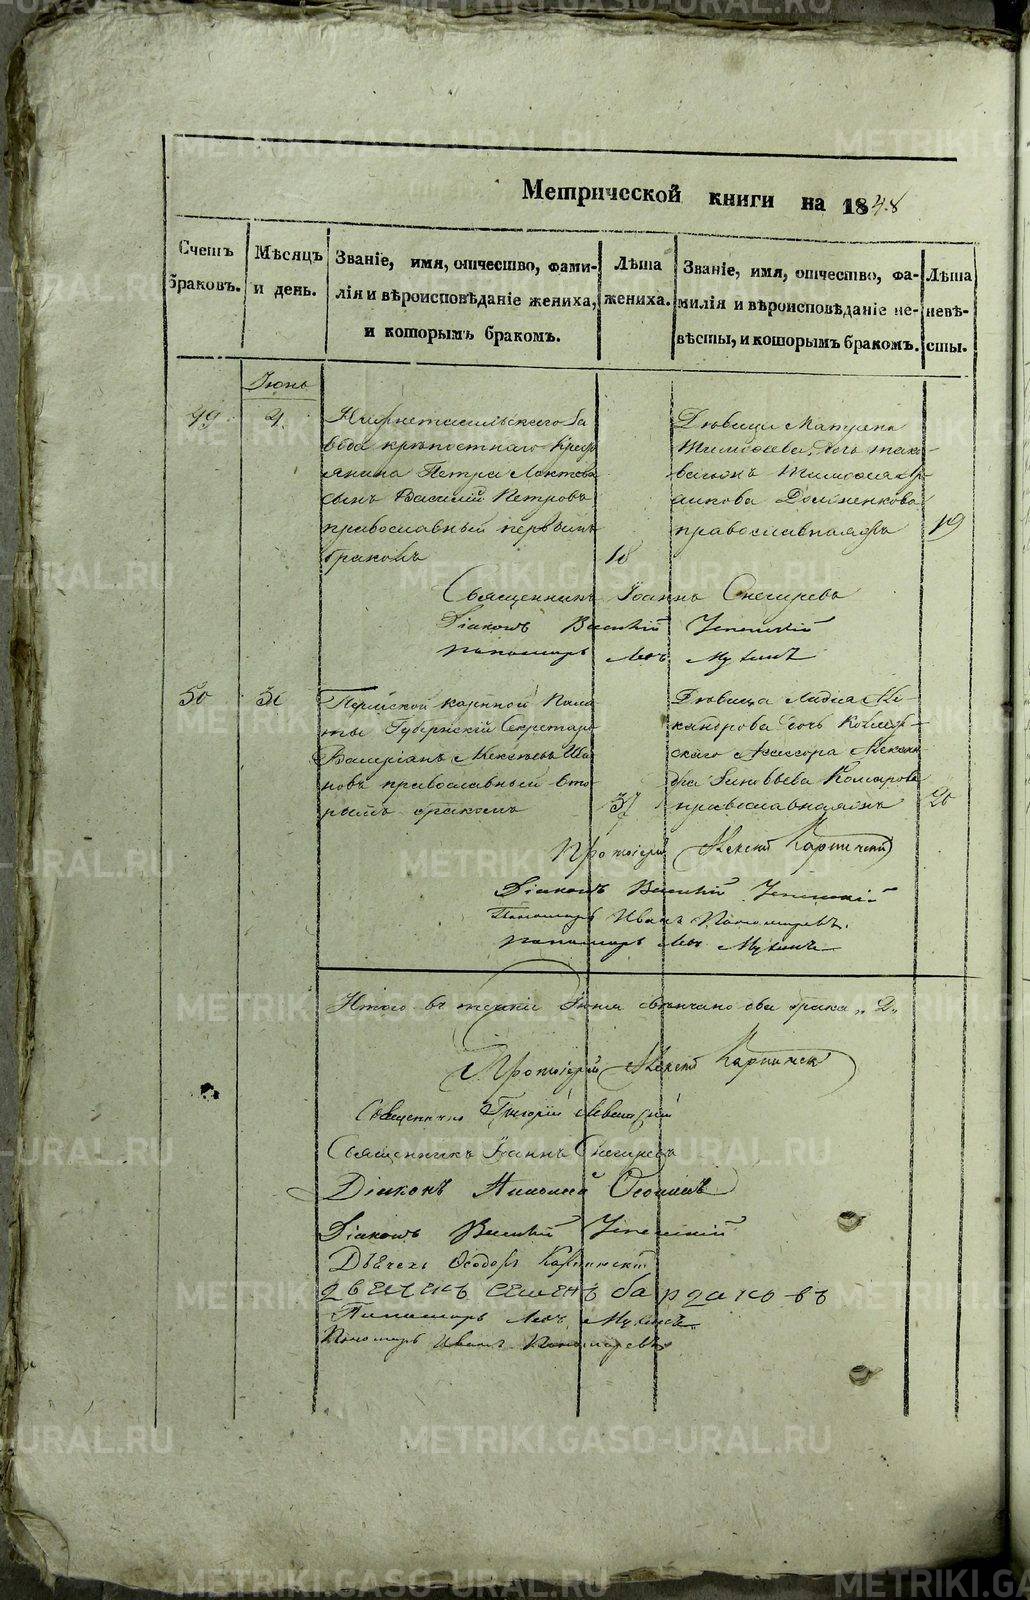 Метрической книги на 1848
Счетъ браковъ.
Мѣсяцъ и день.
Званіе, имя, отчество, фами-
лія и вѣроисповѣданіе жениха,
и которымъ бракомъ.
Лѣта
жениха.
Званіе, имя, отчество, фа-
милія и вѣроисповѣданіе не-
вѣсты, и которымъ бракомъ.
Лѣта
невѣ-
сты.
Іюнь
49
4.
Нижнетагильскаго за
вода крѣпостнаго Крест
янина Петра
сынъ Василій Петровъ
православный первымъ
бракомъ
18
Дѣвица Матрена
Тимофеева, дочь
православная
19
Священникъ Іоаннъ Снегиревъ
Діаконъ Василій Успенскій
Пономарь Левъ Мухинъ
50
30
Пермской казенной Пала
ты Губернскій Секретарь
Валеріанъ Алексѣевъ
новъ православный вто
рымъ бракомъ
37
Дѣвица Лидія Але
ксандрова дочь Коллеж-
скаго Ассесора Алексан
дра Зиновьева Комарова
православная
20
Протоіерей Алексій Карпинскій
Діаконъ Василій Успенскій
Пономарь Иванъ Пономаревъ.
Пономарь Левъ Мухинъ
Итого въ теченіе Іюня вѣнчано два брака „2„
Протоіерей Алексій Карпинскій
Священникъ Григорій Левицкій
Священникъ Іоаннъ Снегиревъ
Діаконъ
Діаконъ Василій Успенскій
Дьячекъ Ѳеодоръ Карпинскій
дьячекъ Семенъ бардаковъ
Пономарь Левъ Мухинъ
Пономарь Иванъ Пономаревъ
METRIKI.GASO-URAL.RU